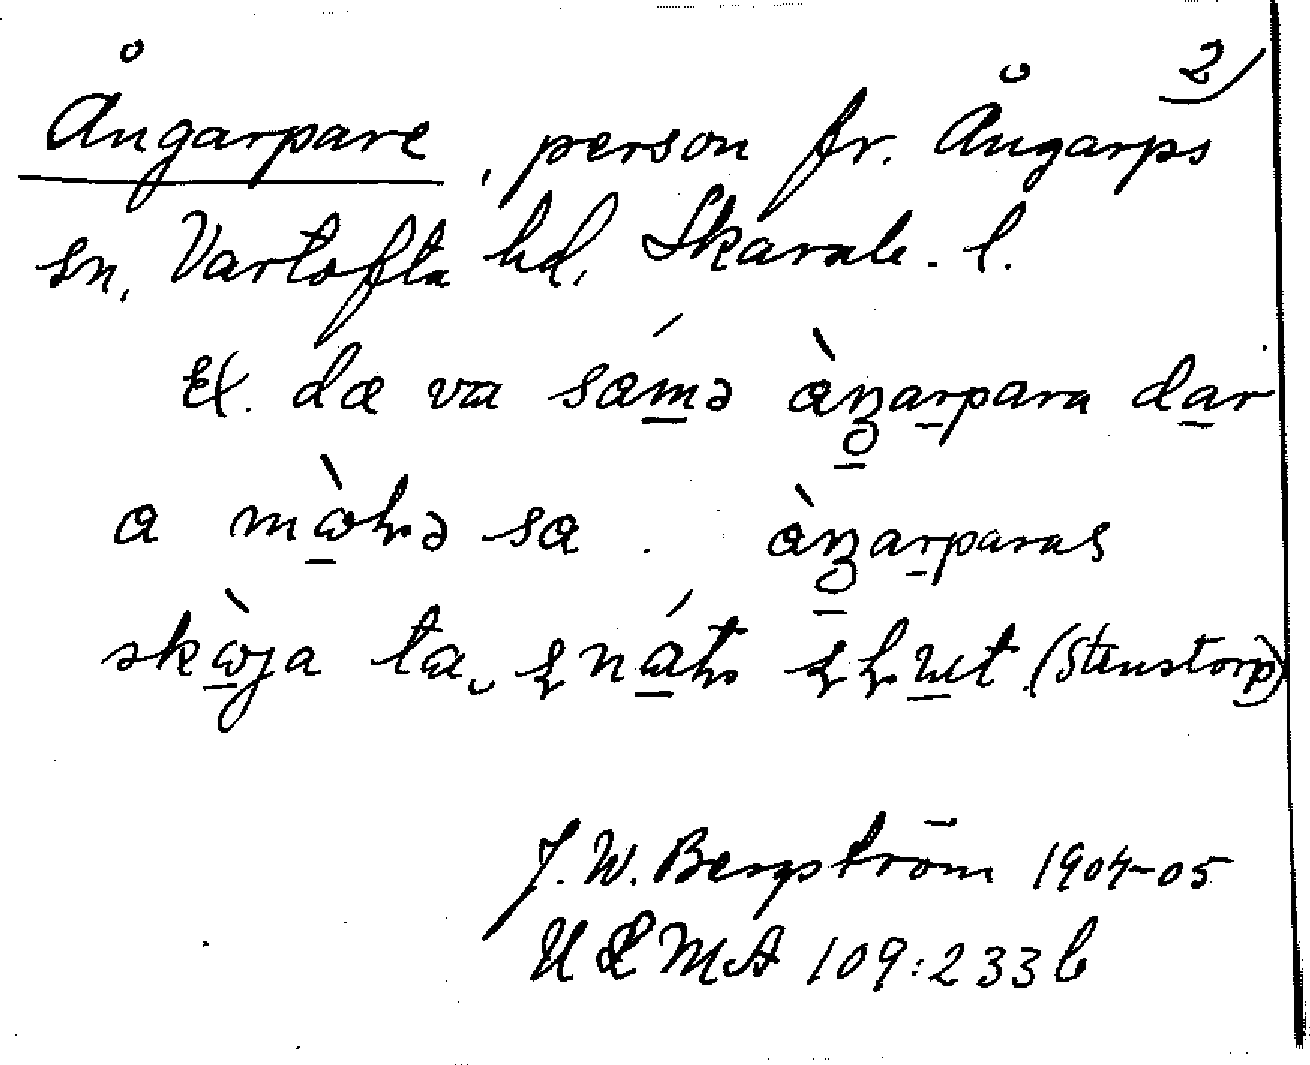 2)
Ångarpare, person fr. Ångarps
sn, Vartofta hd, Skarab. l.
Ex. dæ va sámə àŋarpara dar
a sæ. àŋarparas
skòja ta (Stenstorp)
J. W. Bergström 1904-05
ULMA 109:233 b